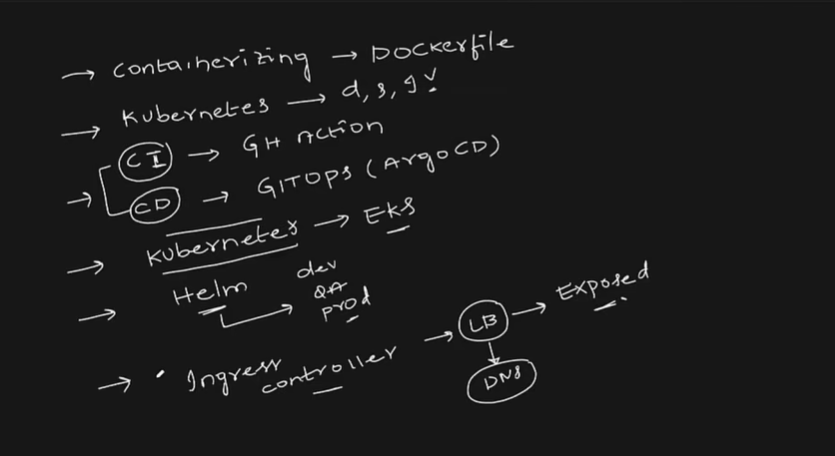 → Containerizing → DOCKerfile
→ Kubernetes → d, s, g
CI → GH Action
→ CD → GITOPS (ArgoCD)
→ Kubernetes → EKS
→ Helm → dev
QA
prod
→ Ingress controller → LB → Exposed
DNS